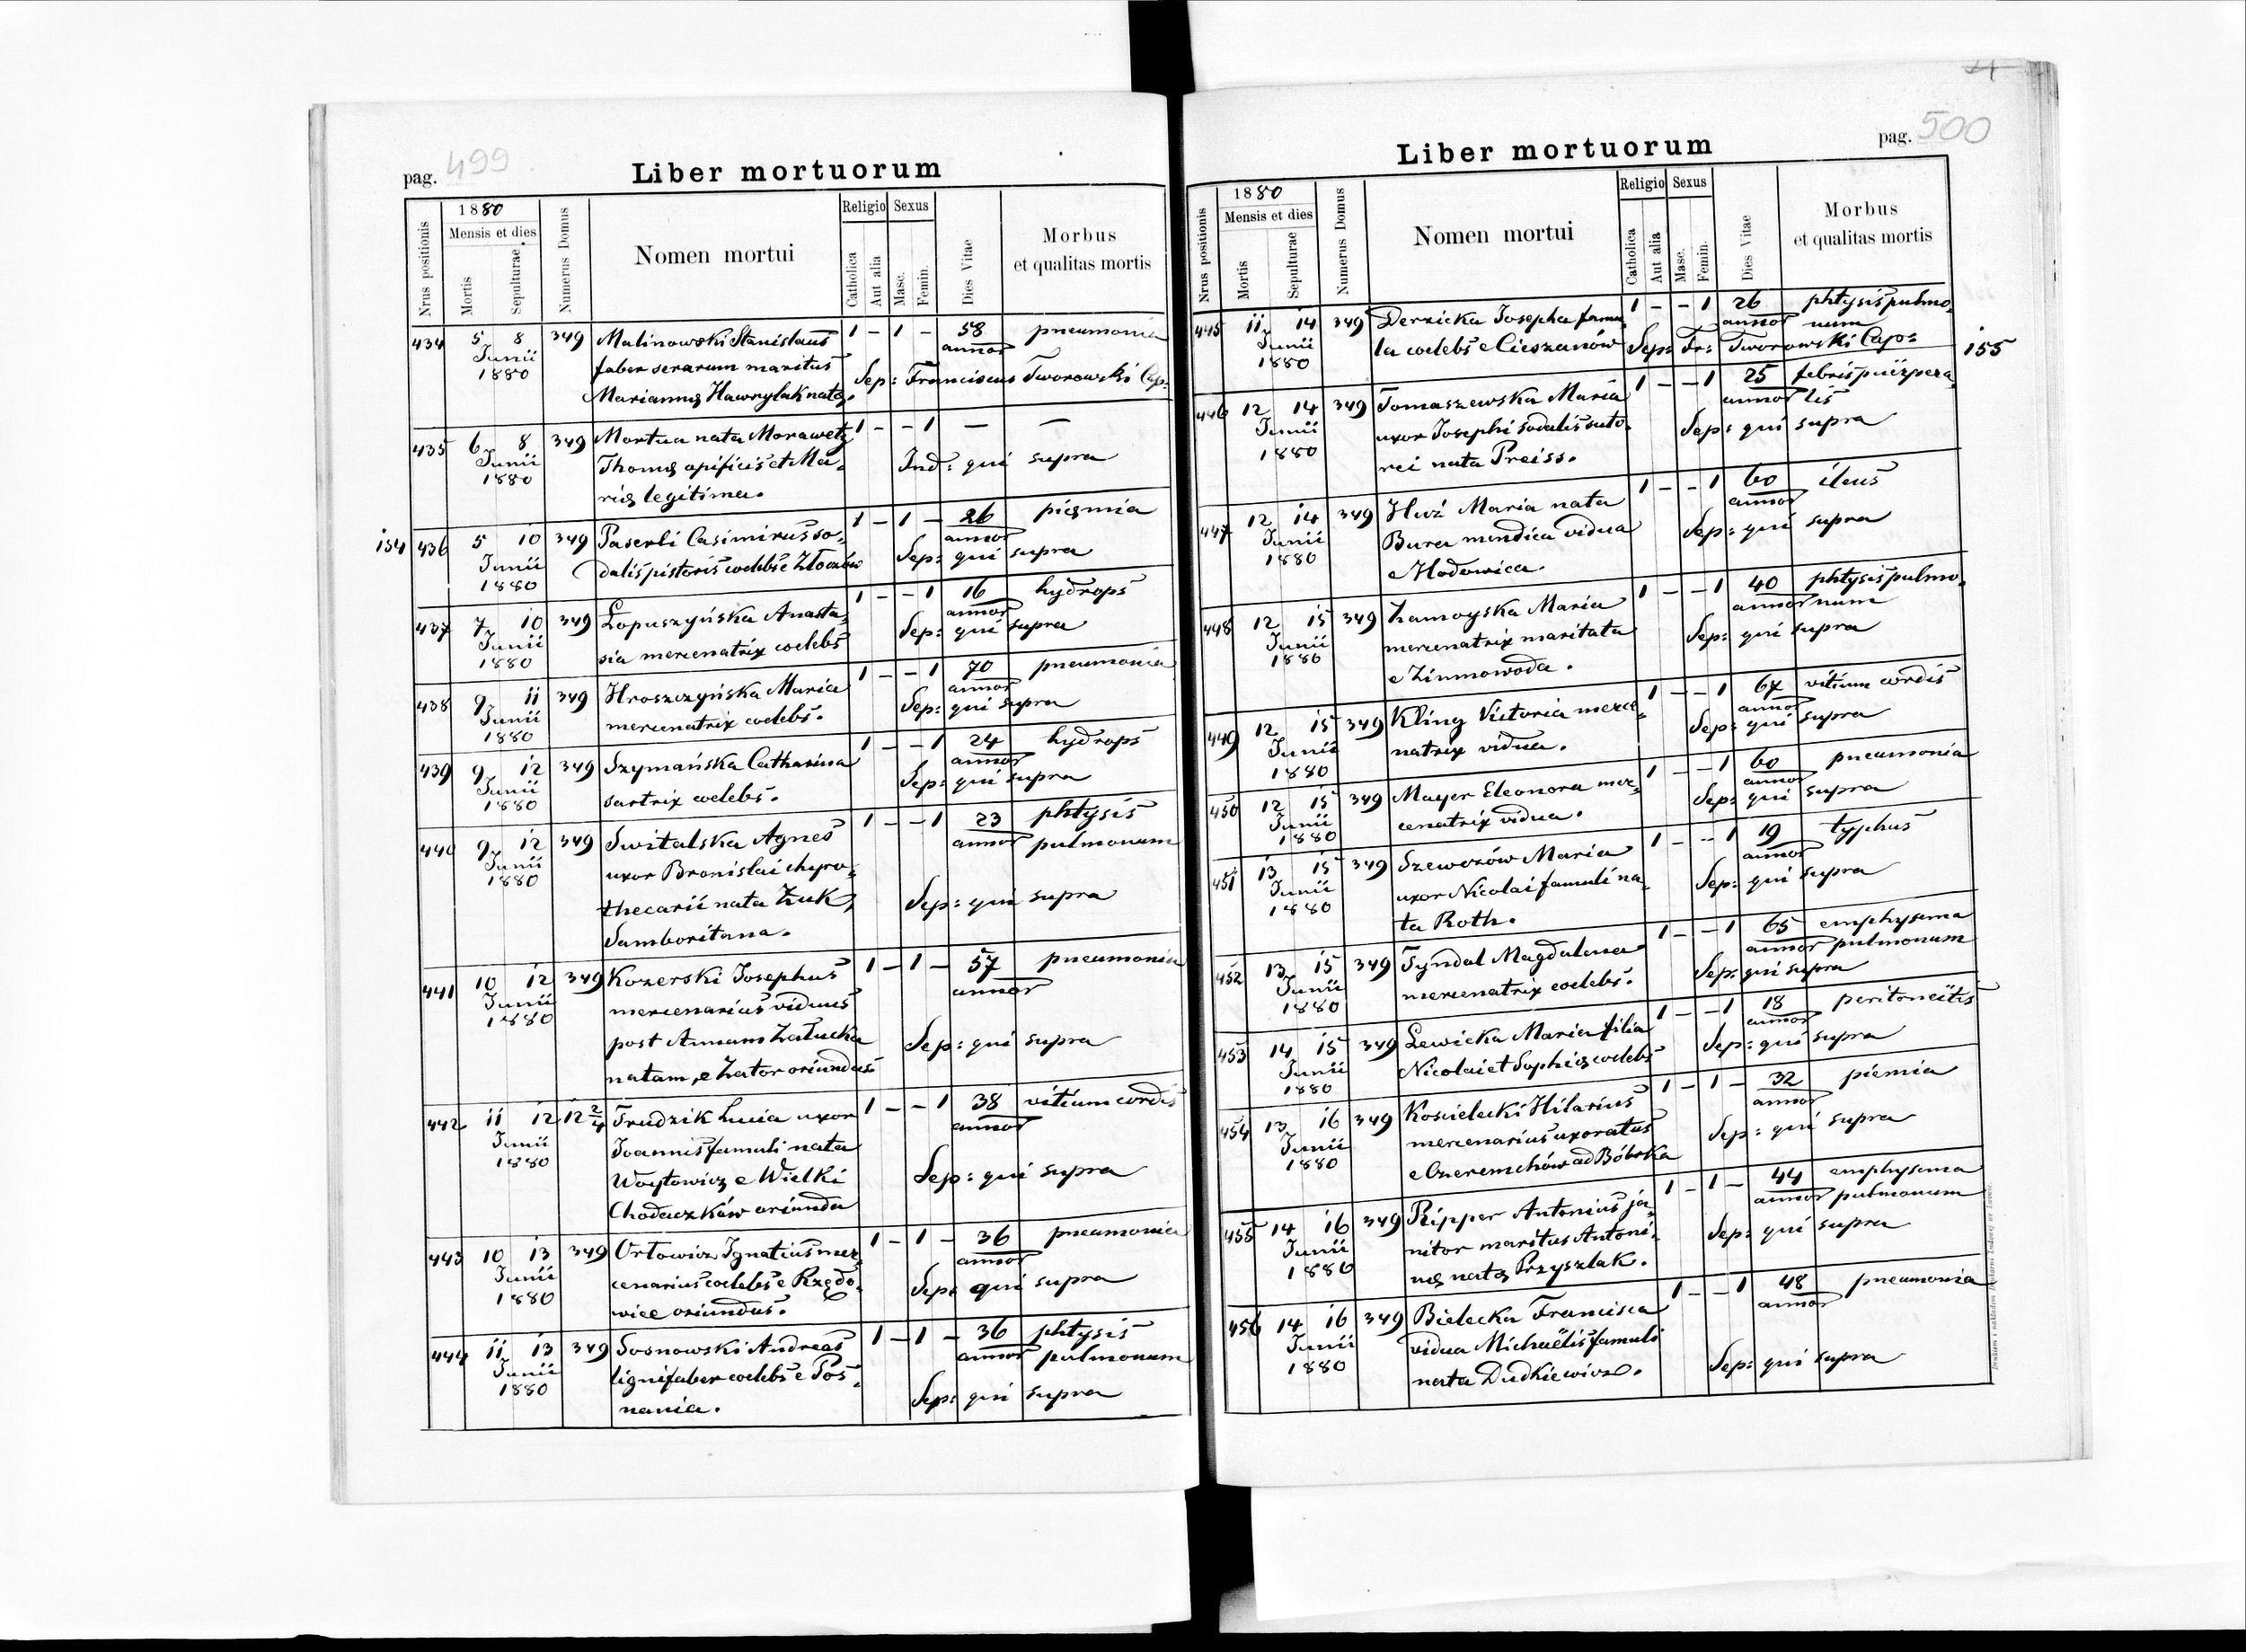 pag. 499
Liber mortuorum
Nrus positionis
1880
Mensis et dies
Mortis
Sepulturae
Numerus Domus
Nomen mortui
Religio
Catholica
Aut alia
Sexus
Masc.
Femin.
Dies Vitae
Morbus
et qualitas mortis
434 5 8 349 Malinowski Stanislaus 1 - 1 - 58 pneumonia
Junii faber serarum maritus annor
1880 Mariannę Hawrylak natę. Sep: Franciscus Tworowski Cap:
435 6 8 349 Mortua nata Morawetz 1 - - 1 — —
Junii Thomę opificis et Ma- Ind: qui supra
1880 rię legitima.
154 436 5 10 349 Paserbi Casimirus so- 1 - 1 - 26 pięmia
Junii dalis pistoris coelebs e Złoczów annor
1880 Sep: qui supra
437 7 10 349 Łopuszyńska Anasta- 1 - - 1 16 hydrops
Junii sia mercenatrix coelebs annor
1880 Sep: qui supra
438 9 11 349 Hroszczyńska Maria 1 - - 1 70 pneumonia
Junii mercenatrix coelebs. annor
1880 Sep: qui supra
439 9 12 349 Szymańska Catharina 1 - - 1 24 hydrops
Junii sartrix coelebs. annor
1880 Sep: qui supra
440 9 12 349 Switalska Agnes 1 - - 1 23 phtysis
Junii uxor Bronislai chyro- annor pulmonum
1880 thecarii nata Żuk, Sep: qui supra
Samboritana.
441 10 12 349 Kozerski Josephus 1 - 1 - 57 pneumonia
Junii mercenarius viduus annor
1880 post Annam Załucka Sep: qui supra
natam, e Zator oriundus.
442 11 12 12 2/4 Trudzik Lucia uxor 1 - - 1 38 vitium cordis
Junii Joannis famuli nata annor
1880 Woytowicz e Wielki Sep: qui supra
Chodaczków oriunda
443 10 13 349 Ortowicz Ignatius mer- 1 - 1 - 36 pneumonia
Junii cenarius coelebs e Rzędo- annor
1880 wice oriundus. Sep: qui supra
444 11 13 349 Sosnowski Andreas 1 - 1 - 36 phtysis
Junii lignifaber coelebs e Pos- annor pulmonum
1880 nania. Sep: qui supra
pag. 500
Liber mortuorum
Nrus positionis
1880
Mensis et dies
Mortis
Sepulturae
Numerus Domus
Nomen mortui
Religio
Catholica
Aut alia
Sexus
Masc.
Femin.
Dies Vitae
Morbus
et qualitas mortis
445 11 14 349 Derzicka Josepha famu- 1 - - 1 26 phtysis pulmo-
Junii la coelebs e Cieszanów annor num
1880 Sep: Fr: Tworowski Cap:
155
446 12 14 349 Tomaszewska Maria 1 - - 1 25 febris puërpera-
Junii uxor Josephi sodalis suto- annor lis
1880 rei nata Preiss. Sep: qui supra
447 12 14 349 Huź Maria nata 1 - - 1 60 ileus
Junii Bura mendica vidua annor
1880 e Hodowica. Sep: qui supra
448 12 15 349 Zamoyska Maria 1 - - 1 40 phtysis pulmo-
Junii mercenatrix maritata annor num
1880 e Zimnowoda. Sep: qui supra
449 12 15 349 Kling Victoria merce- 1 - - 1 67 vitium cordis
Junii natrix vidua. annor
1880 Sep: qui supra
450 12 15 349 Mayer Eleonora mer- 1 - - 1 60 pneumonia
Junii cenatrix vidua. annor
1880 Sep: qui supra
451 13 15 349 Szewczów Maria 1 - - 1 19 typhus
Junii uxor Nicolai famuli na- annor
1880 ta Roth. Sep: qui supra
452 13 15 349 Tyndal Magdalena 1 - - 1 65 emphysema
Junii mercenatrix coelebs. annor pulmonum
1880 Sep: qui supra
453 14 15 349 Lewicka Maria filia 1 - - 1 18 peritoneitis
Junii Nicolai et Sophię coelebs annor
1880 Sep: qui supra
454 13 16 349 Koscielecki Hilarius 1 - 1 - 32 piemia
Junii mercenarius uxoratus annor
1880 e Czeremchów ad Bóbrka Sep: qui supra
455 14 16 349 Ripper Antonius ja- 1 - 1 - 44 emphysema
Junii nitor maritus Antoni- annor pulmonum
1880 nę natę Przyszlak. Sep: qui supra
456 14 16 349 Bielecka Francisca 1 - - 1 48 pneumonia
Junii vidua Michaëlis famuli annor
1880 nata Dudkiewicz. Sep: qui supra